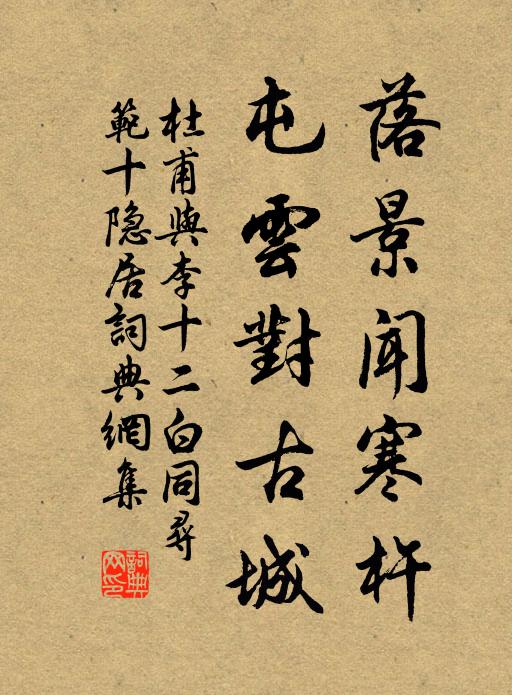 落景闻寒杵
屯雲對古城
杜甫與李十二白同尋
範十隐居詞典網集
詞典
网印